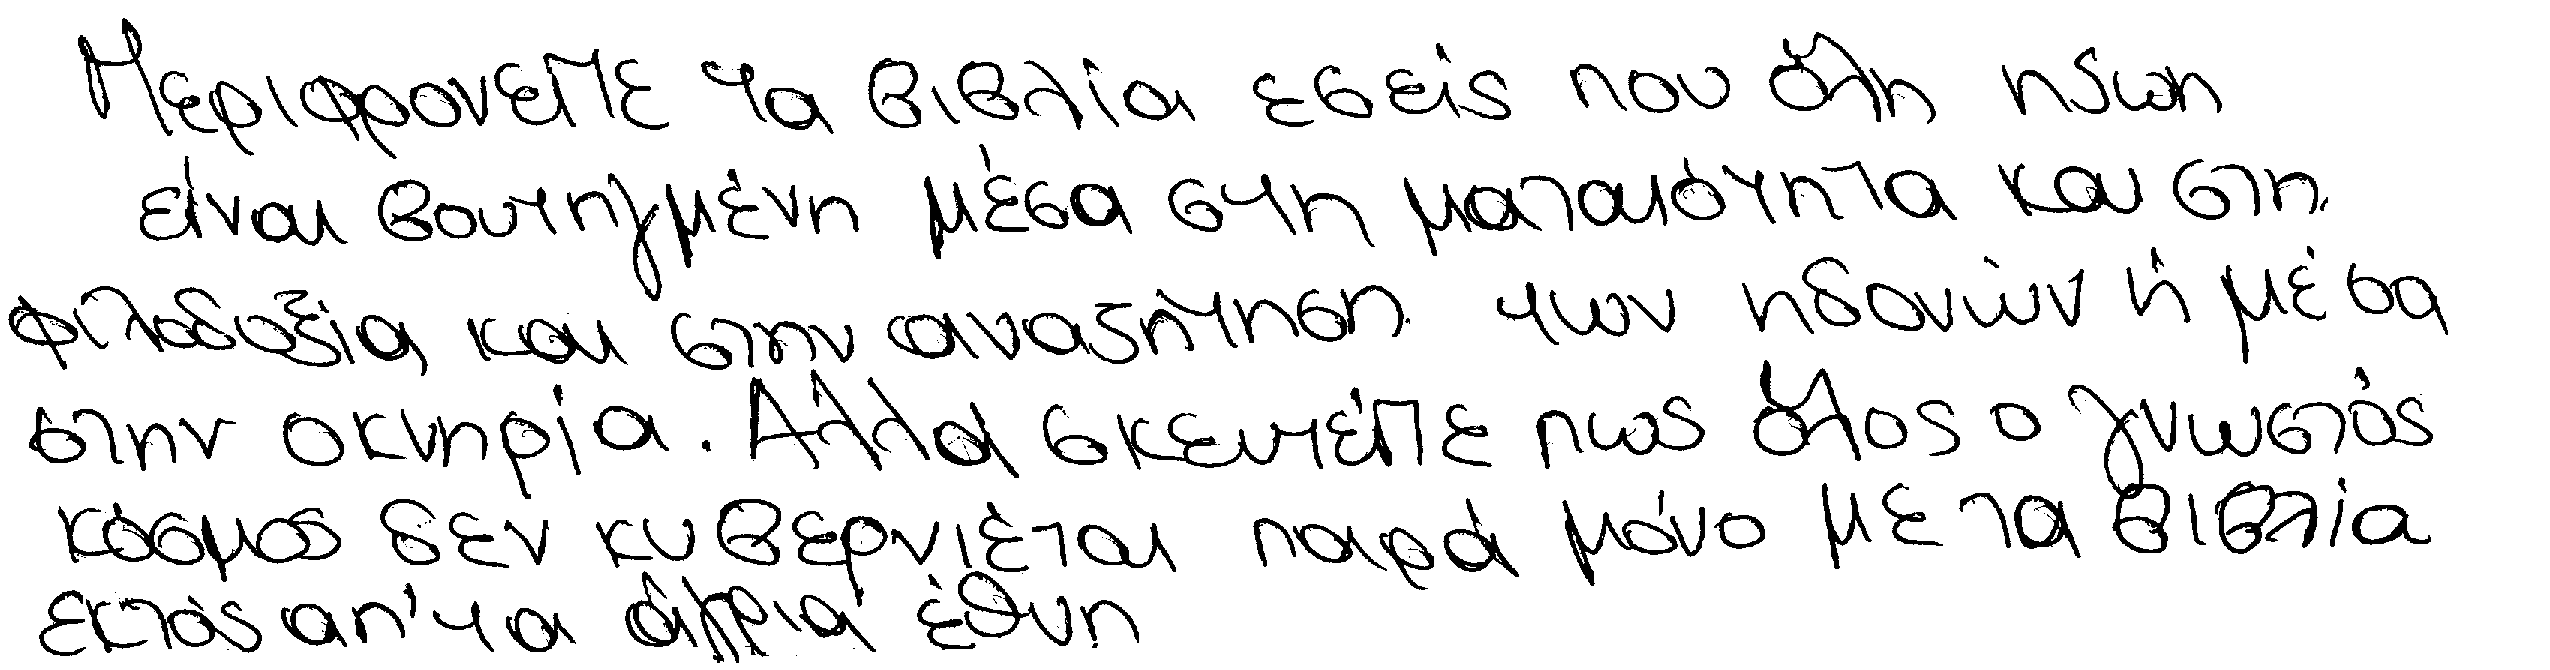 Περιφρονείτε τα βιβλία εσείς που όλη η ζωη
είναι βουτηγμένη μέσα στη ματαιότητα και στη
φιλοδοξία και στην αναζήτηση των ηδονών ή μέσα
στην οκνηρία. Αλλά σκευτείτε πως όλος ο γνωστός
κόσμος δεν κυβερνιέται παρά μόνο με τα βιβλία
εκτός απ' τα άγρια έθνη